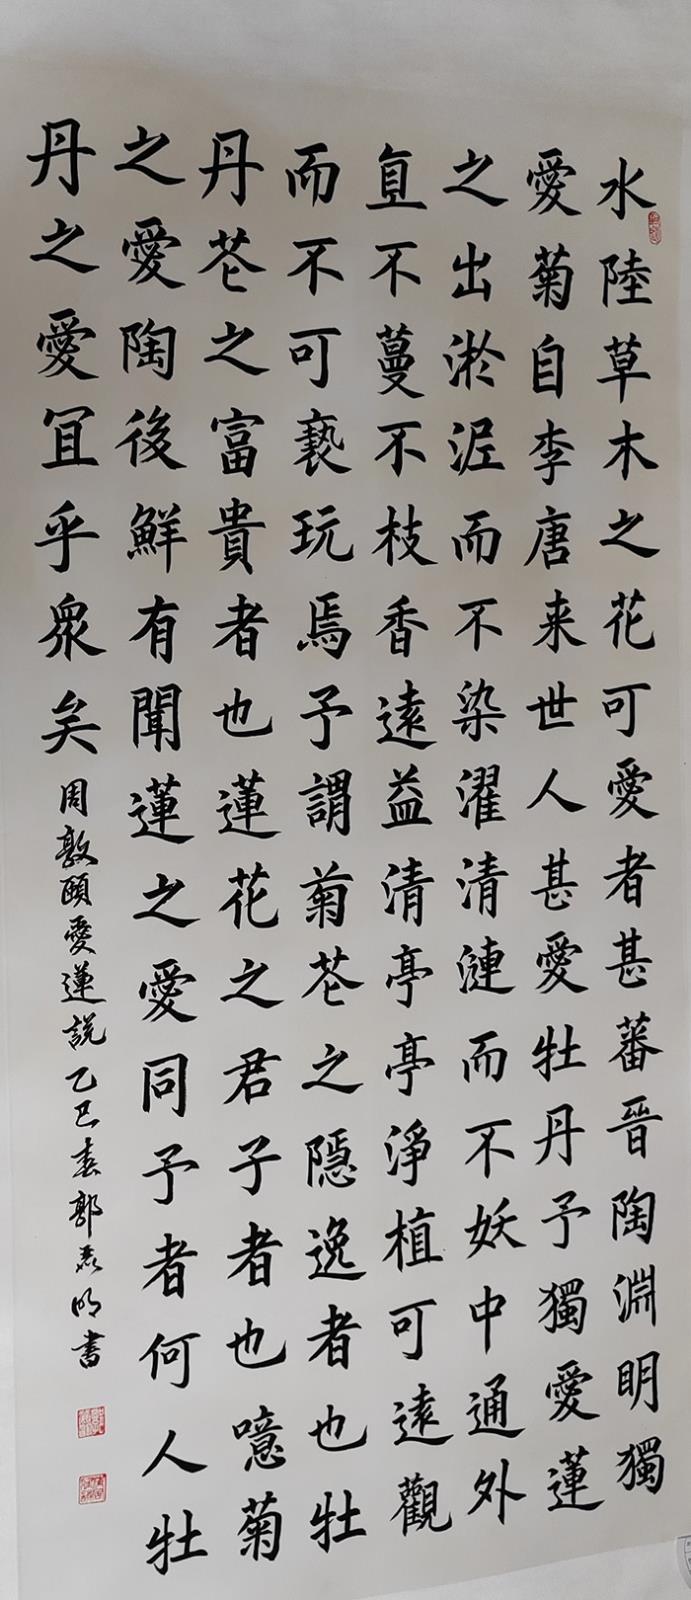 水陸草木之花可愛者甚蕃晉陶淵明獨
愛菊自李唐来世人甚愛牡丹予獨愛蓮
之出淤泥而不染濯清漣而不妖中通外
直不蔓不枝香遠益清亭亭淨植可遠觀
而不可褻玩焉予謂菊苍之隠逸者也牡
丹苍之富貴者也蓮花之君子者也噫菊
之愛陶後鮮有聞蓮之愛同予者何人牡
丹之愛冝乎眾矣
周敦頤愛蓮說乙巳春郭 明書